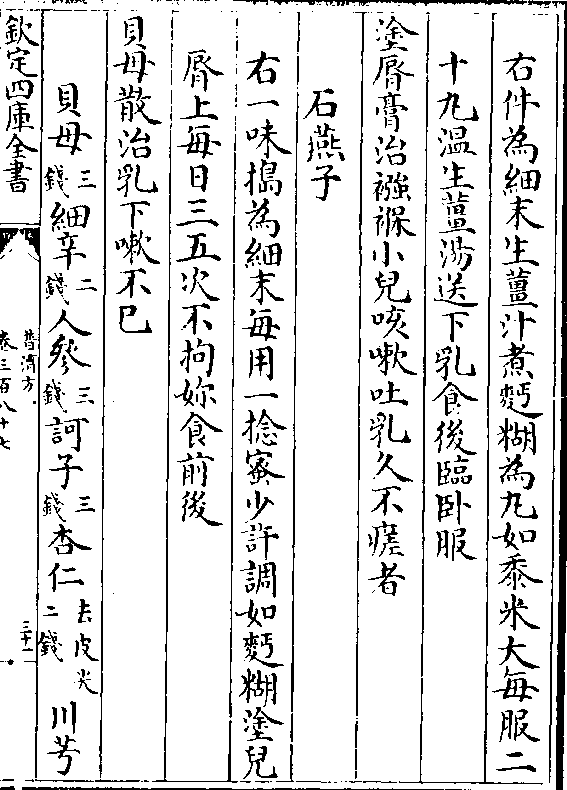 右件為細末生薑汁煮麪糊為丸如黍米大每服二
十丸温生薑湯送下乳食後臨卧服
塗脣膏治襁褓小兒咳嗽吐乳久不瘥者
石燕子
右一味搗為細末每用一捻蜜少許調如麪糊塗兒
脣上每日三五次不拘妳食前後
貝母散治乳下嗽不已
貝母三錢細辛二錢人參三錢訶子三錢杏仁去皮尖二錢川芎
欽定四庫全書
普濟方
卷三百八十七
三十一